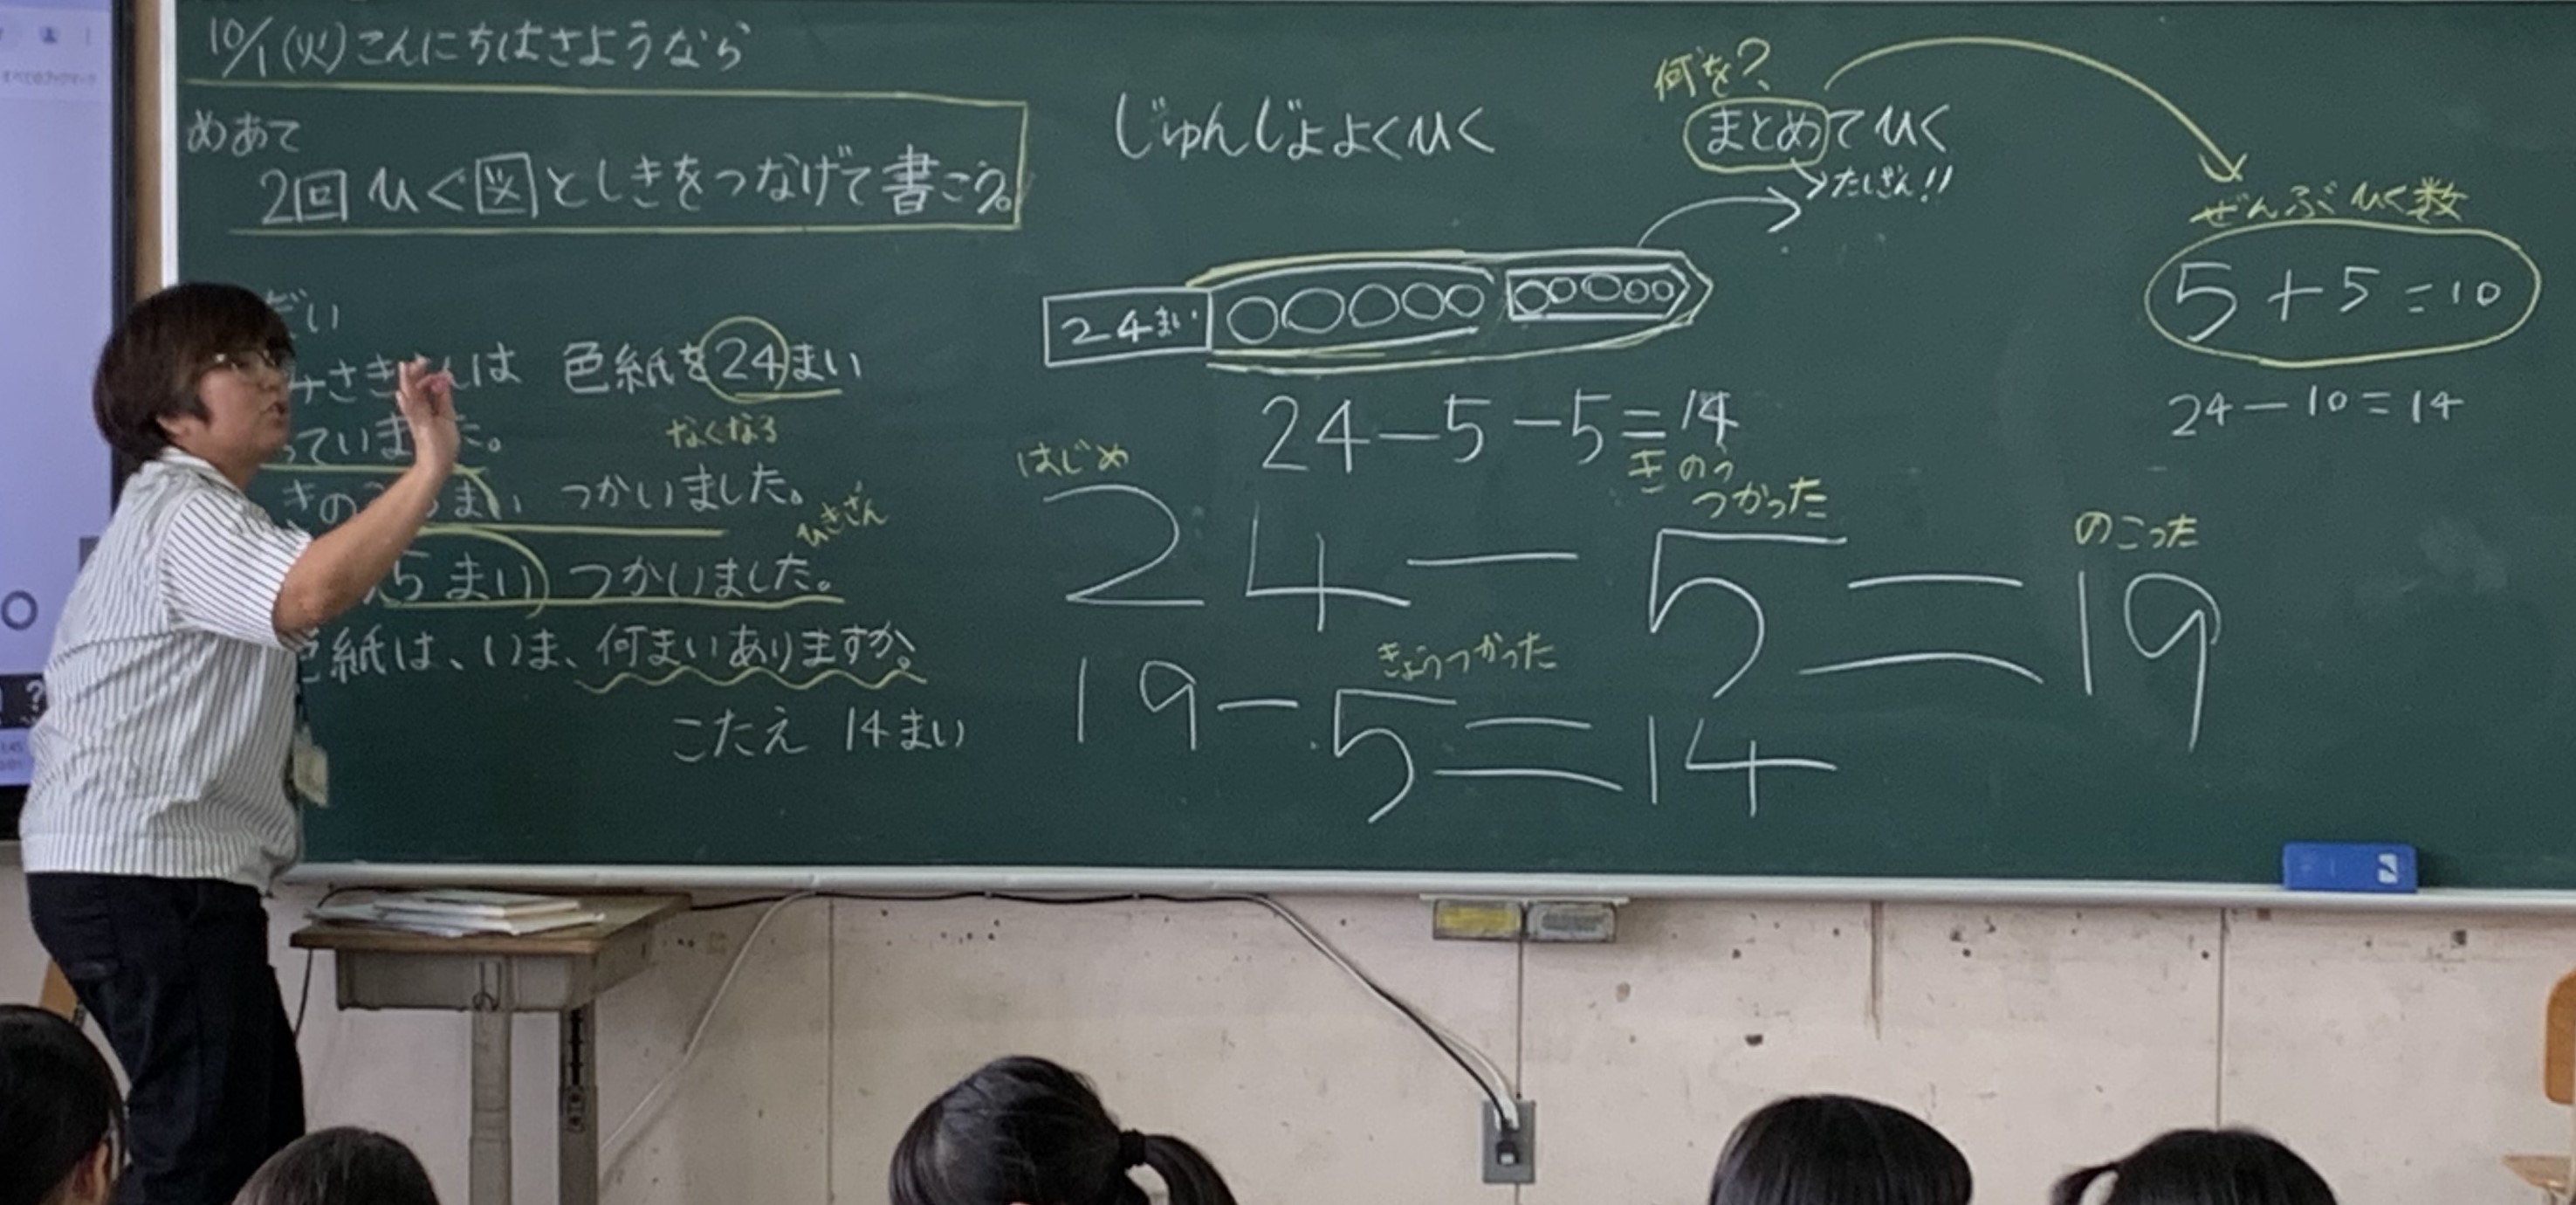 10/1(火)こんにちはさようなら
めあて
2回ひく図としきをつなげて書こう。
だい
みさきさんは 色紙を24まい
っていました。
なくなる
きのう5まい つかいました。
ひきざん
5まい つかいました。
色紙は、いま、何まいありますか。
こたえ 14まい
じゅんじょよくひく
24まい
24-5-5=14
はじめ
きのう
つかった
のこった
24-5=19
きょうつかった
19-5=14
何を?
まとめてひく
たしざん!!
ぜんぶひく数
5+5=10
24-10=14